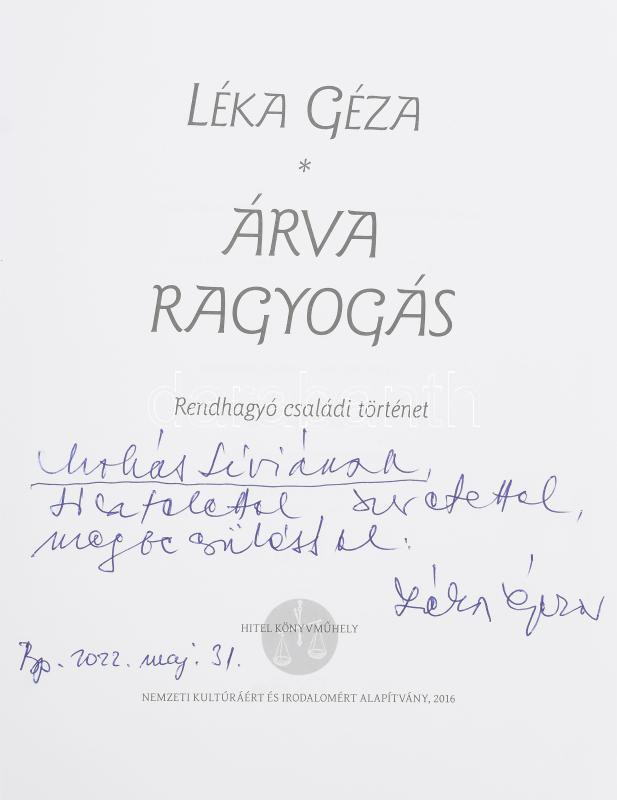 LÉKA GÉZA
*
ÁRVA
RAGYOGÁS
darabanth
Rendhagyó családi történet
Mohás Líviának,
tisztelettel szeretettel,
megbecsüléssel:
Léka Géza
HITEL KÖNYVMŰHELY
Bp. 2022. maj. 31.
NEMZETI KULTÚRÁÉRT ÉS IRODALOMÉRT ALAPÍTVÁNY, 2016